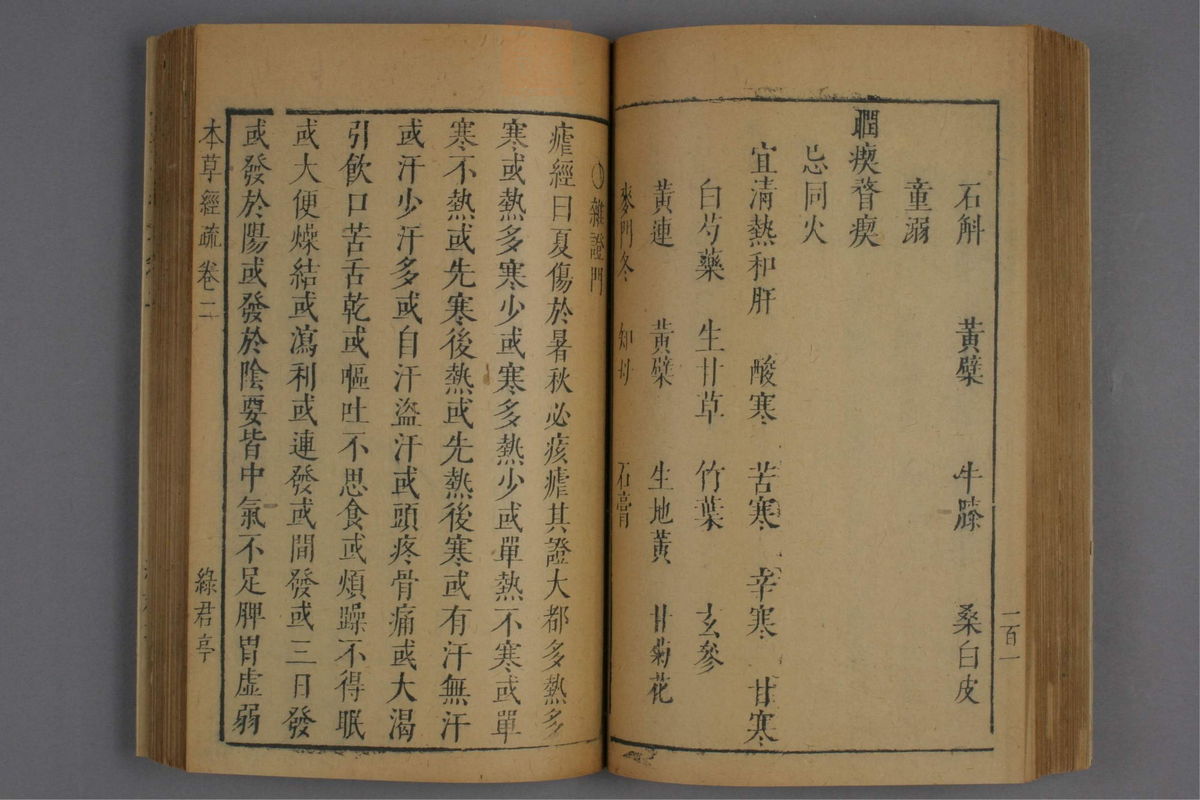 石斛　黃檗　牛膝　桑白皮
童溺
瞤瘈瞀瘈
忌同火
宜清熱和肝　酸寒　苦寒　辛寒　甘寒
白芍藥　生甘草　竹葉　玄參
黃連　黃檗　生地黃　甘菊花
麥門冬　知母　石膏
〇雜證門
瘧經曰夏傷於暑秋必痎瘧其證大都多熱多
寒或熱多寒少或寒多熱少或單熱不寒或單
寒不熱或先寒後熱或先熱後寒或有汗無汗
或汗少汗多或自汗盜汗或頭疼骨痛或大渴
引飲口苦舌乾或嘔吐不思食或煩躁不得眠
或大便燥結或瀉利或連發或間發或三日發
或發於陽或發於陰要皆中氣不足脾胃虛弱
本草經疏　卷二　綠君亭
一百一